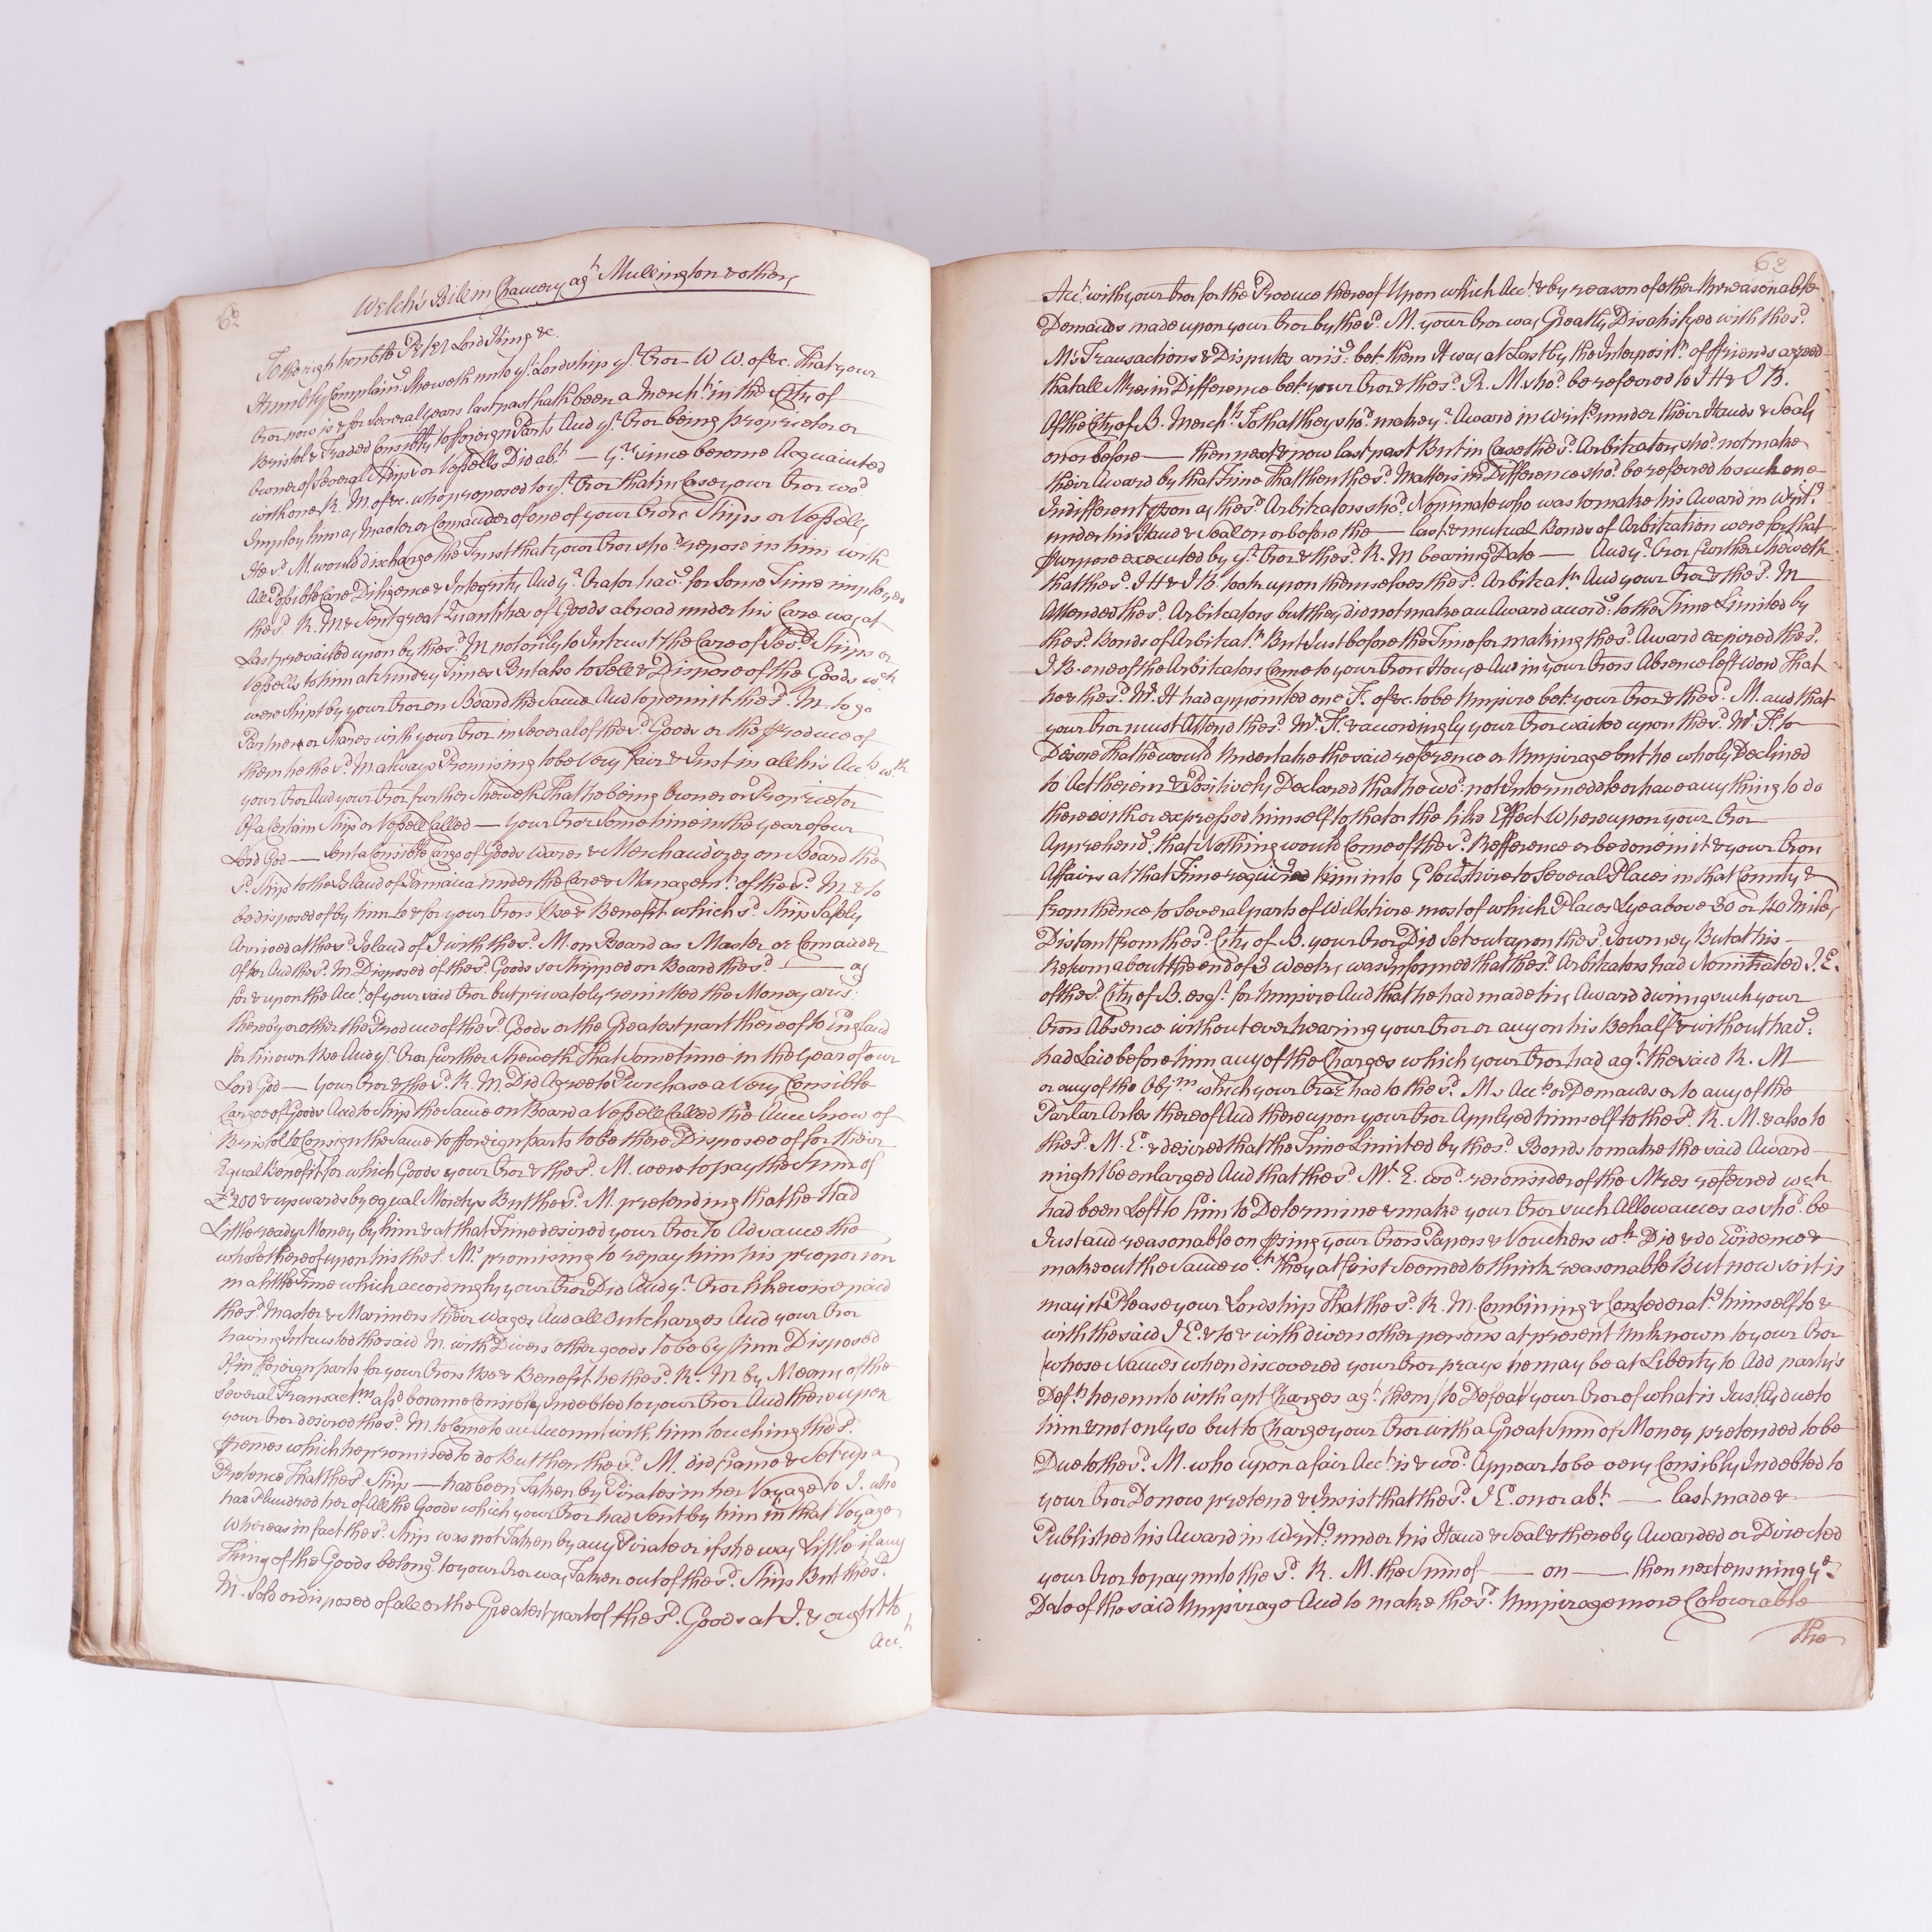 62
Welch's Bill in Chancery agt Mullington & others
To the right honble Peter Lord King &c.
Humbly Complaind. Sheweth unto yr. Lordship yr. Oror W W. of &c. That your
Oror now is & for Several years last past hath been a Mercht. in the City of
Bristol & Traded Consibly to fforeign Parts And yr. Oror being proprietor or
Owner of Several Ships or Vessells Did abt. — yrs. since become Acquainted
with one R. M. of &c. who proposed to yr. Oror that in Case your Oror wod.
Imploy him as Master or Comander of one of your Orors Ships or Vessells
He sd. M. would discharge the Trust that your Oror shod. repose in him with
All Possible Care Diligence & Integrity And yr. Orator havg. for Some Time imployed
the sd. R. M & Sent great Quantities of Goods abroad under his Care was at
Last prevailed upon by the sd. M not only to Intrust the Care of Sevl. Ships or
Vessells to him at Sundry Times But also to Sell & Dispose of the Goods wch
were Shipt by your Oror on Board the Same And to permit the sd. M. to go
Partner or Shares with your Oror in Several of the sd. Goods or the produce of
them he the sd. M always Promising to be very fair & Just in all his Accts wth
your Oror And your Oror further Sheweth That he being Owner or Proprietor
Of a Certain Ship or Vessell Called — your Oror Sometime in the year of our
Lord God — Sent a Consible Cargo of Goods Wares & Merchandizes on Board the
sd. Ship to the Island of Jamaica under the Care & Managemt. of the sd. M & to
be disposed of by him to & for your Orors Use & Benefit which sd. Ship Safely
Arrived at the sd. Island of J with the sd. M. on Board as Master or Comander
Of her And the sd. M Disposed of the sd. Goods so Shipped on Board the sd. — as
for & upon the Acct. of your said Oror but privately remitted the Money aris:
thereby or other the Produce of the sd. Goods or the Greatest part thereof to England
for his own Use And yr. Oror further Sheweth That Sometime in the Year of our
Lord God — your Oror & the sd. R. M. Did Agree to Purchase a Very Consible
Cargoe of Goods And to Ship the Same on Board a Vessell Called the Ann Snow of
Bristol to Consign the Same to fforeign parts to be there Disposed of for their
Equal Benefit for which Goods your Oror & the sd. M. were to pay the Sum of
£200 & upwards by equal Moietys But the sd. M. pretending that he Had
Little ready Money by him & at that Time desired your Oror to Advance the
whole thereof upon his the sd. Ms promising to repay him his proporion
in a little Time which accordingly your Oror Did And yr. Oror likewise paid
the sd. Master & Mariners their Wages And all Outcharges And your Oror
having Intrusted the said M. with Divers other goods to be by him Disposed
Of in fforeign parts for your Orors Use & Benefit he the sd. R. M by Means of the
Several Transactns. afsd became Consibly Indebted to your Oror And thereupon
your Oror desired the sd. M. to Come to an Account with him touching the sd.
Premes which he promised to do But then the sd. M. did frame & Set up a
Pretence That the sd. Ship — had been Taken by Pirates in her Voyage to J. who
had Plundred her of All the Goods which your Oror had Sent by him in that Voyage
Whereas in fact the sd. Ship was not Taken by any Pirate or if she was Little if any
Thing of the Goods belongg. to your Oror was Taken out of the sd. Ship But the sd.
M. Sold or disposed of all or the Greatest part of the sd. Goods at J. & ought to
Acct.
63
Acct. with your Oror for the Produce thereof Upon which Acct. & by reason of other Unreasonable
Demands made upon your Oror by the sd. M. your Oror was Greatly Disatisfyed with the sd.
Ms Transactions & Disputes arisg. bet. them It was at Last by the Interpositn. of ffriends agreed
that all Mres in Difference bet. your Oror & the sd. R. M. shod. be referred to J H & J B.
Of the City of B. Merchts. So that they shod. make yr. Award in Writg under their Hands & Seals
on or before — then next & now last past But in Case the sd. Arbitrators shod. not make
their Award by that Time That then the sd. Matters in Difference shod. be referred to such one
Indifferent pson as the sd. Arbitrators shod. Nominate who was to make his Award in Writg.
under his Hand & Seal on or before the — last & mutual Bonds of Arbitration were for that
Purpose executed by yr. Oror & the sd. R. M bearing Date — And yr. Oror further Sheweth
that the sd. J H & J B took upon themselves the sd. Arbitratn And your Oror & the sd. M
Attended the sd. Arbitrators but they did not make an Award accord: to the Time Limited by
the sd. Bonds of Arbitratn But Just before the Time for making the sd. Award expired the sd.
J B. one of the Arbitrators Came to your Orors House And in your Orors Absence left Word That
he & the sd. Mr. H had appointed one F. of &c. to be Umpire bet. your Oror & the sd. M. and that
your Oror must Attend the sd. Mr F. & accordingly your Oror waited upon the sd. Mr. F. to
Desire That he would Undertake the said reference or Umpirage but he wholy Declined
to Act therein & Positively Declared that he wod. not Intermeddle or have any thing to do
therewith or expressed himself to that or the like Effect Whereupon your Oror
Apprehendg. that Nothing would Come of the sd. Refference or be done in it & your Orors
Affairs at that Time requird him into Gloucrshire to Several Places in that County &
from thence to Several parts of Wiltshire most of which Places Lye above 30 or 40 Miles
Distant from the sd. City of B. your Oror Did Set out upon the sd. Journey But at his
Return about the end of 3 Weeks was Informed that the sd. Arbitrators had Nominated J. E.
of the sd. City of B. esqr. for Umpire And that he had made his Award during such your
Orors Absence without ever hearing your Oror or any on his Behalf & without havg.
had Laid before him any of the Charges which your Oror had agt. the said R. M
or any of the Objns which your Oror had to the sd. Ms Accts or Demands or to any of the
Parlar Arles thereof And thereupon your Oror Applyed himself to the sd. R. M. & also to
the sd. M. E. & desired that the Time Limited by the sd. Bonds to make the said Award
might be enlarged And that the sd. Mr. E. wod. reconsider of the Mres referred wch
had been Left to him to Determine & make your Oror such Allowances as shod. be
Just and reasonable on psing your Orors Papers & Vouchers wch Did & do Evidence &
make out the Same wch they at first Seemed to think reasonable But now so it is
may it Please your Lordship That the sd. R. M. Combining & Confederatg himself to &
with the said J E. & to & with divers other persons at present Unknown to your Oror
(whose Names when discovered your Oror prays he may be at Liberty to Add party's
Defts hereunto with apt Charges agt. them) to Defeat your Oror of what is Justly due to
him & not only so but to Charge your Oror with a Great Sum of Money pretended to be
Due to the sd. M. who upon a fair Acct. is & wod. Appear to be very Consibly Indebted to
your Oror Do now pretend & Insist that the sd. J E. on or abt. — last made &
Published his Award in Writg. under his Hand & Seal & thereby Awarded or Directed
your Oror to pay unto the sd. R. M. the Sum of — on — then next ensuing ye
Date of the said Umpirage And to make the sd. Umpirage more Colourable
the